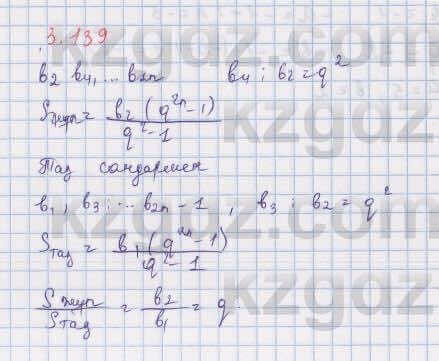 3.139
b₂ b₄, ... b₂ₙ    b₄ : b₂ = q²
Sжұп = b₂ (q²ⁿ - 1) / q² - 1
Тақ сандармен
b₁, b₃ ; ... b₂ₙ - 1, b₃ : b₂ = q²
Sтақ = b₁ (q²ⁿ - 1) / q² - 1
Sжұп / Sтақ = b₂ / b₁ = q
kzgdz
kzgdz
kzgdz
kzgdz